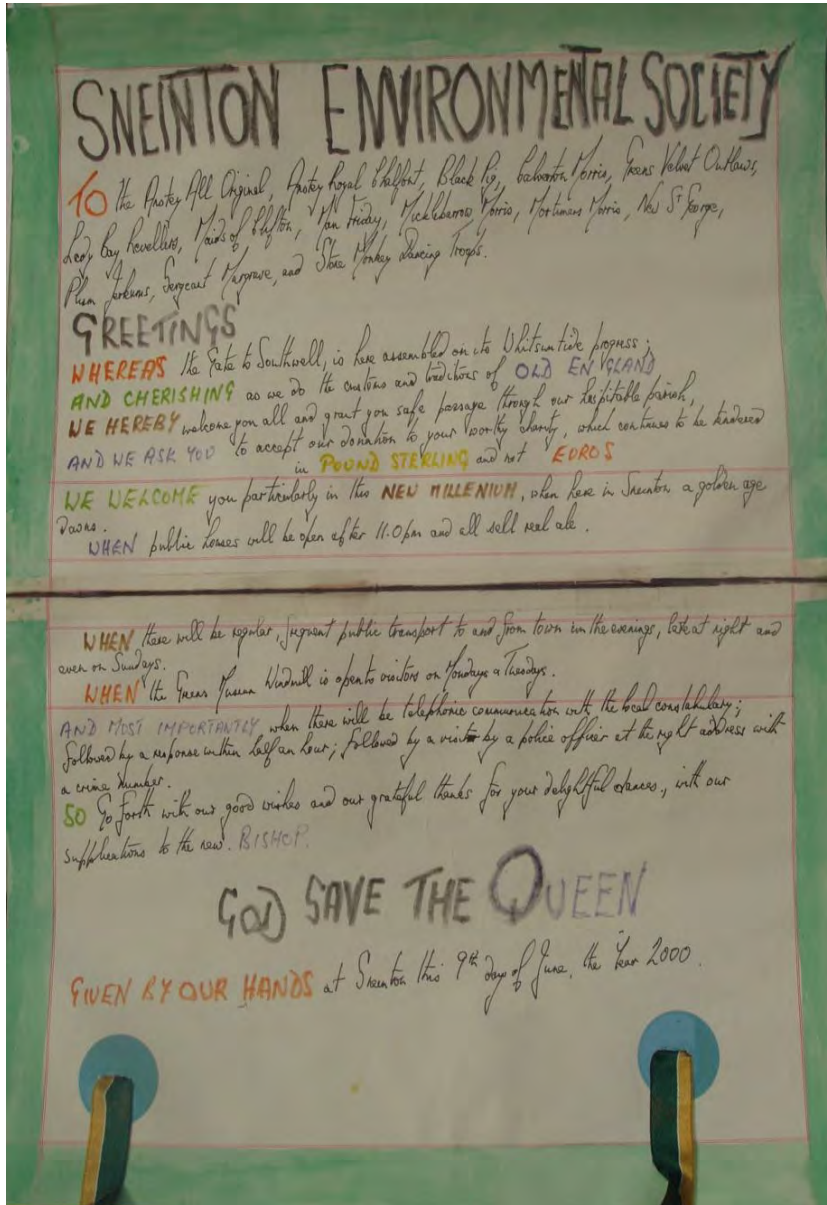 SNEINTON ENVIRONMENTAL SOCIETY
TO the Anstey All Original, Anstey Royal Chalfont, Black Pig, Calverton Morris, Greens Velvet Outlaws,
Lady Bay Revellers, Maids of Clifton, Man Friday, Micklebarrow Morris, Mortimers Morris, New St George,
Plum Jerkums, Sergeant Musgrave, and Stone Monkey Dancing Troops.
GREETINGS
WHEREAS the Gate to Southwell, is here assembled on its Whitsuntide progress;
AND CHERISHING as we do the customs and traditions of OLD ENGLAND
WE HEREBY welcome you all and grant you safe passage through our hospitable parish,
AND WE ASK YOU to accept our donation to your worthy charity, which continues to be tendered
in POUND STERLING and not EUROS
WE WELCOME you particularly in this NEW MILLENIUM, when here in Sneinton a golden age
Dawns.
WHEN public houses will be open after 11.0pm and all sell real ale.
WHEN there will be regular, frequent public transport to and from town in the evenings, late at night and
even on Sundays.
WHEN the Greens Museum Windmill is open to visitors on Mondays & Tuesdays.
AND MOST IMPORTANTLY when there will be telephonic communication with the local constabulary;
followed by a response within half an hour; followed by a visit by a police officer at the right address with
a crime number.
SO Go forth with our good wishes and our grateful thanks for your delightful dances., with our
supplications to the new. BISHOP.
GOD SAVE THE QUEEN
GIVEN BY OUR HANDS at Sneinton this 9th day of June, the Year 2000.